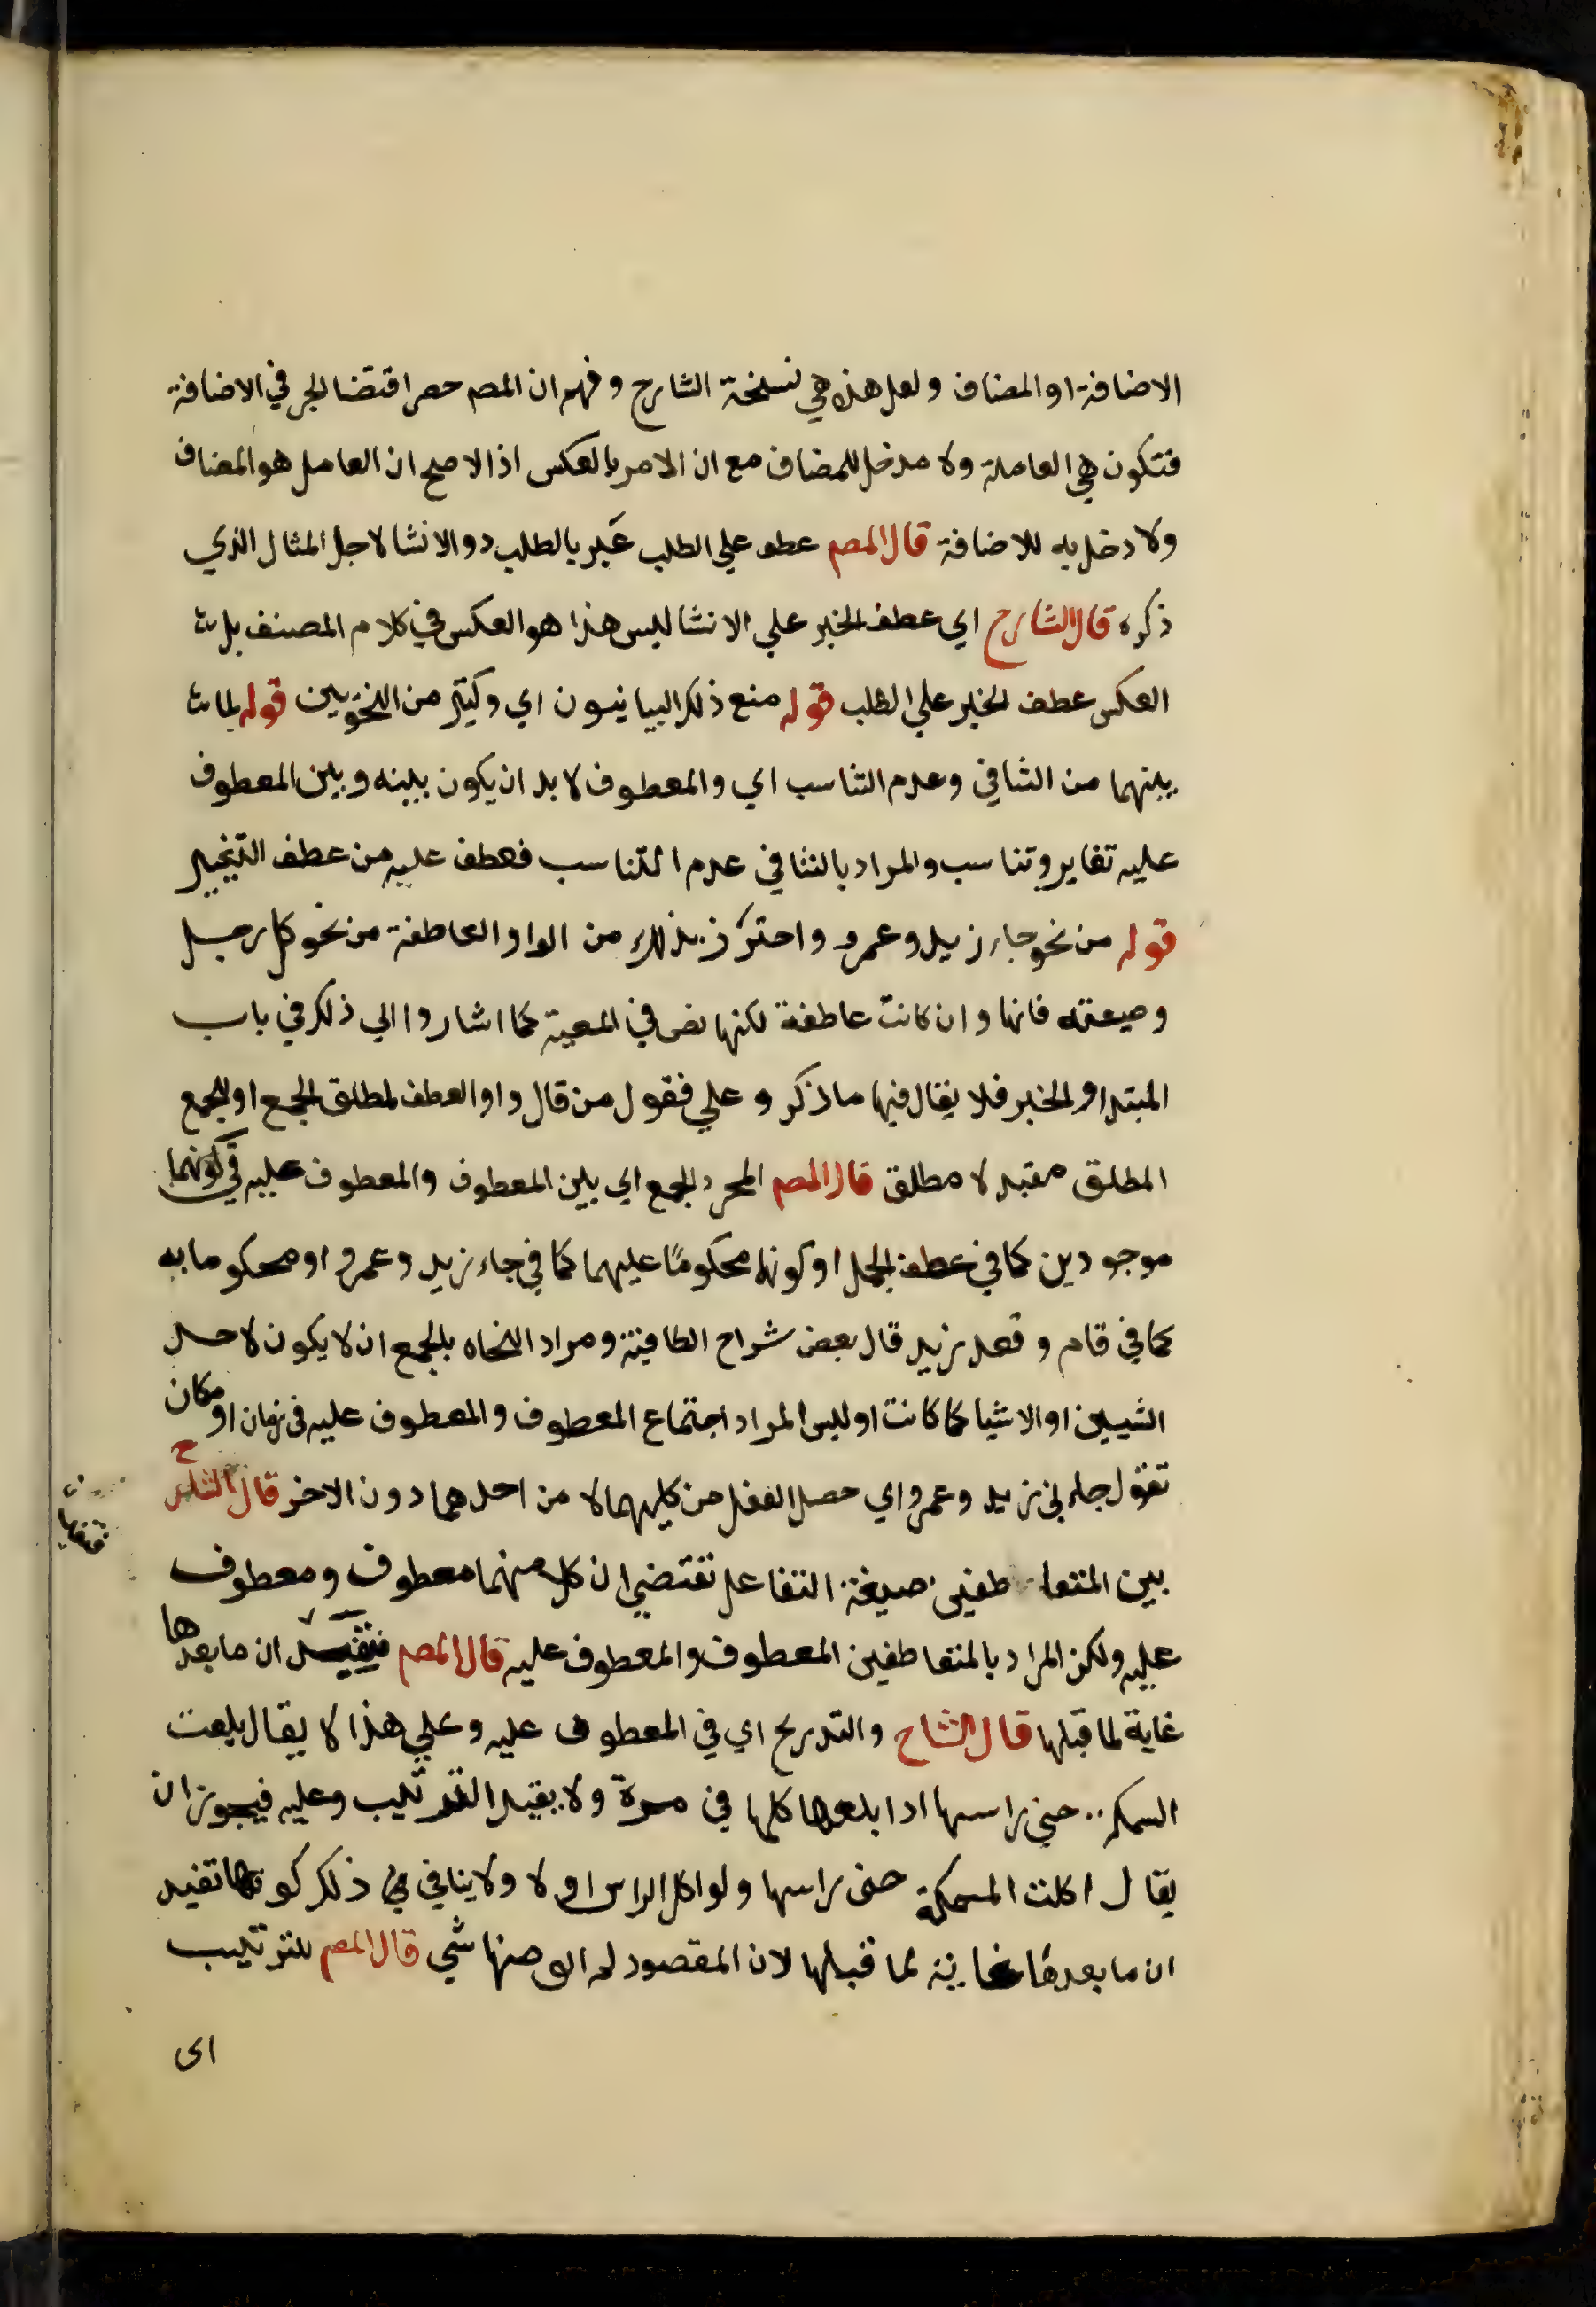 الاضافة او المضاف ولعل هذه هي نسخة الشارح وفهم ان المصم حصر اقتضا الجر في الاضافة
فتكون هي العاملة ولا مدخل للمضاف مع ان الامر بالعكس اذ الاصح ان العامل هو المضاف
ولا دخل به للاضافة قال المصم عطف علي الطلب عَبر بالطلب دو الانشا لاجل المثال الذي
ذكره قال الشارح اي عطف الخبر علي الانشا ليس هذا هو العكس في كلام المصنف بل
العكس عطف الخبر علي الطلب قوله منع ذلك البيانيون اي وكثير من النحويين قوله لما
بينهما من التنافي وعدم التناسب اي والمعطوف لا بد ان يكون بينه وبين المعطوف
عليه تغاير وتناسب والمراد بالتنافي عدم التناسب فعطف عليه من عطف التفسير
قوله من نحو جاء زيد وعمرو واحترز بذلك من الواو العاطفة من نحو كل رجل
وصيعته فانها وان كانت عاطفة لكنها نص في المعية كما اشاروا الي ذلك في باب
المبتدا والخبر فلا يقال فيها ما ذكر وعلي فقول من قال واو العطف لمطلق الجمع او للجمع
المطلق مقيد لا مطلق قال المصم لمجرد الجمع اي بين المعطوف والمعطوف عليه في كونهما
موجودين كما في عطف الجمل او كونهما محكومًا عليهما كما في جاء زيد وعمرو او محكوما به
كما في قام وقعد زيد قال بعض شراح الكافية ومراد النحاه بالجمع ان لا يكون لاحد
الشيين او الاشيا كما كانت او ليس المراد اجتماع المعطوف والمعطوف عليه في زمان او مكان
تقول جاءني زيد وعمرو اي حصل الفعل من كليهما لا من احدهما دون الاخر قال الشارح
بين المتعاطفين صيغة التفاعل تقتضي ان كلا منهما معطوف ومعطوف
عليه ولكن المراد بالمتعاطفين المعطوف والمعطوف عليه قال المصم فتفيد ان ما بعدها
غاية لما قبلها قال الشاح والتدريج اي في المعطوف عليه وعلي هذا لا يقال بلعت
السمكة حتي راسها اذا بلعها كلها في مرة ولا يقيد الترتيب وعليه فيجوز ان
يقال اكلت السمكة حتى راسها ولو اكل الراس اولا ولا ينافي ذلك كونها تفيد
ان ما بعدها غاية لما قبلها لان المقصود شي قال المصم للترتيب
اى